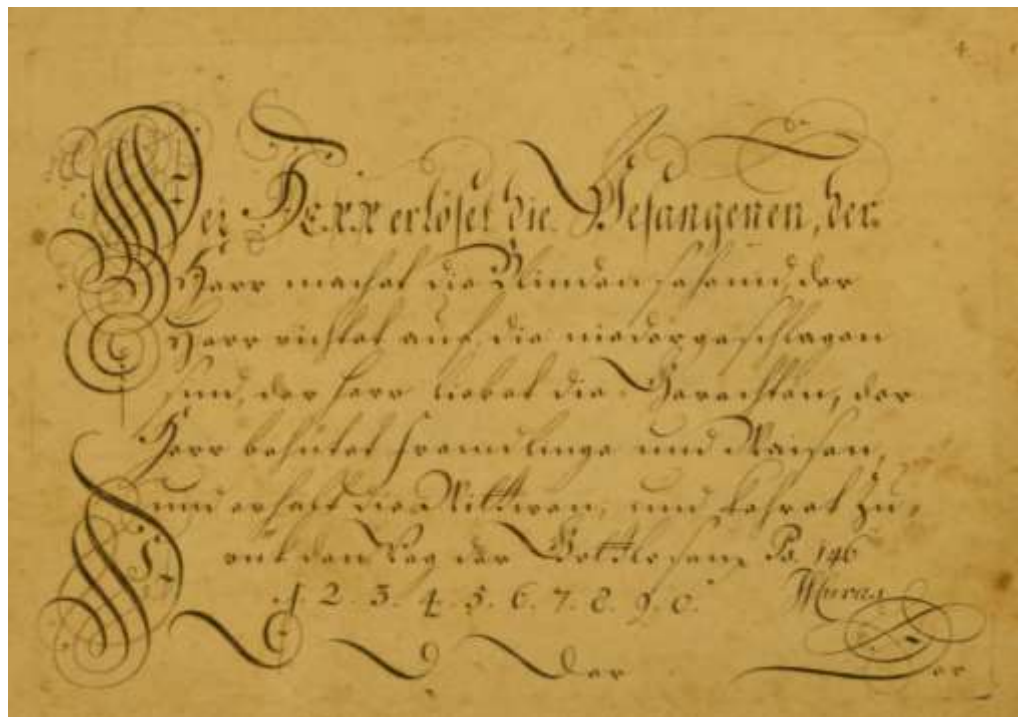 4.
Der HERR erlöset die Gefangenen, der
Herr machet die Blinden sehend, der
Herr richtet auf, die niedergeschlagen
sind, der Herr liebet die Gerechten, der
Herr behütet Fremdlinge und Waisen,
und erhält die Wittwen, und kehret zu-
rük den Weg der Gottlosen, Ps. 146
1 2. 3. 4. 5. 6. 7. 8. 9. 0.
Der Der